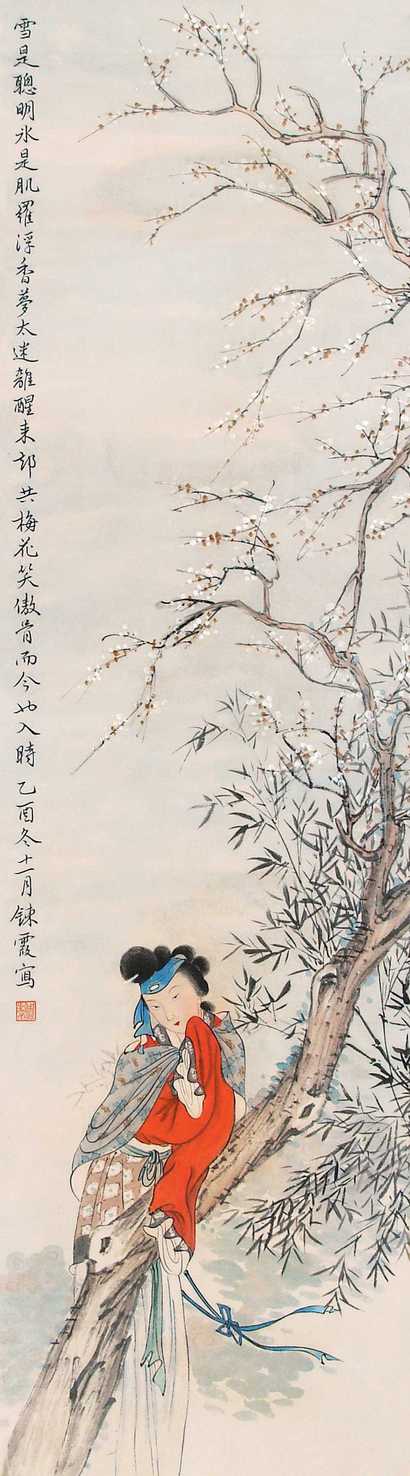 雪是聰明冰是肌羅浮香夢太迷離醒来却共梅花笑傲骨而今也入時乙酉冬十一月鍊霞寫